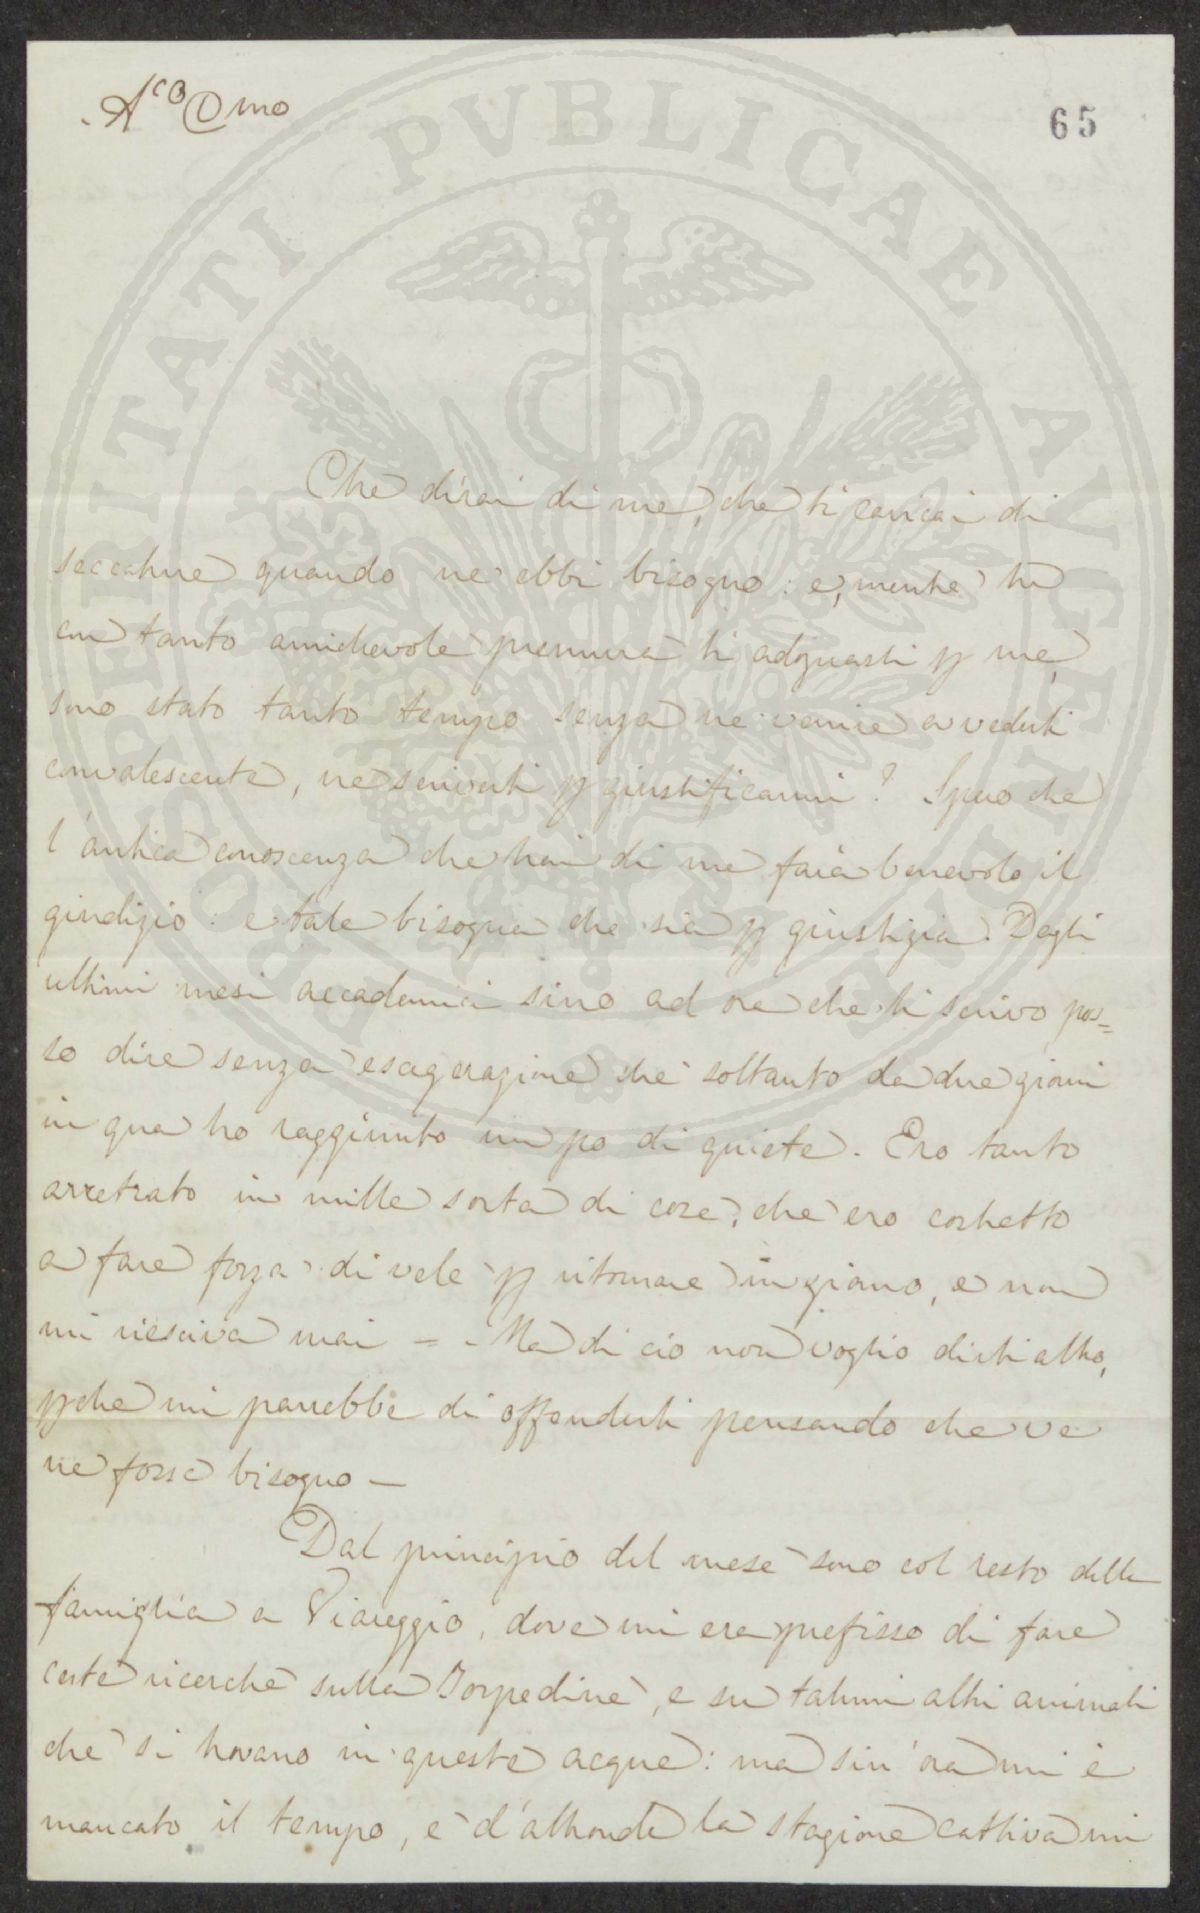 A.co C.mo
65
Che dirai di me, che ti caricai di
seccature quando ne ebbi bisogno: e, mentre tu
con tanto amichevole premura ti adoprasti p me,
sono stato tanto tempo senza ne venire a vederti
convalescente, ne scriverti p giustificarmi? Spero che
l'antica conoscenza che hai di me farà benevolo il
giudizio: e tale bisogna che sia p giustizia. Dagli
ultimi mesi accademici sino ad ora che ti scrivo, pos=
so dire senza esagerazione che soltanto da due giorni
in qua ho raggiunto un po di quiete. Ero tanto
arretrato in mille sorta di cose, che ero costretto
a fare forza di vele p ritornare in giorno, e non
mi riesciva mai = - Ma di ciò non voglio dirti altro,
pche mi parrebbe di offenderti pensando che ve
ne fosse bisogno —
Dal principio del mese sono col resto della
famiglia a Viareggio, dove mi era prefisso di fare
certe ricerche sulla Torpedine, e su taluni altri animali
che si trovano in queste acque: ma sin'ora mi è
mancato il tempo, e d'altronde la stagione cattiva mi
PROSPERITATI PVBLICAE AVGENDAE